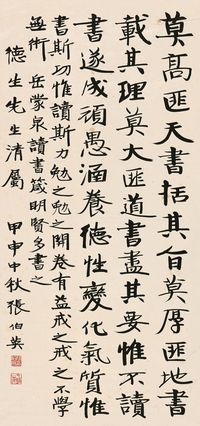 莫高匪天書括其旨莫厚匪地書
載其理莫大匪道書盡其要惟不讀
書遂成頑愚涵養德性變化氣質惟
書斯功惟讀斯力勉之勉之開卷有益戒之戒之不學
無術 岳蒙泉讀書箴明賢多書之
德生先生清屬 甲申中秋張伯英